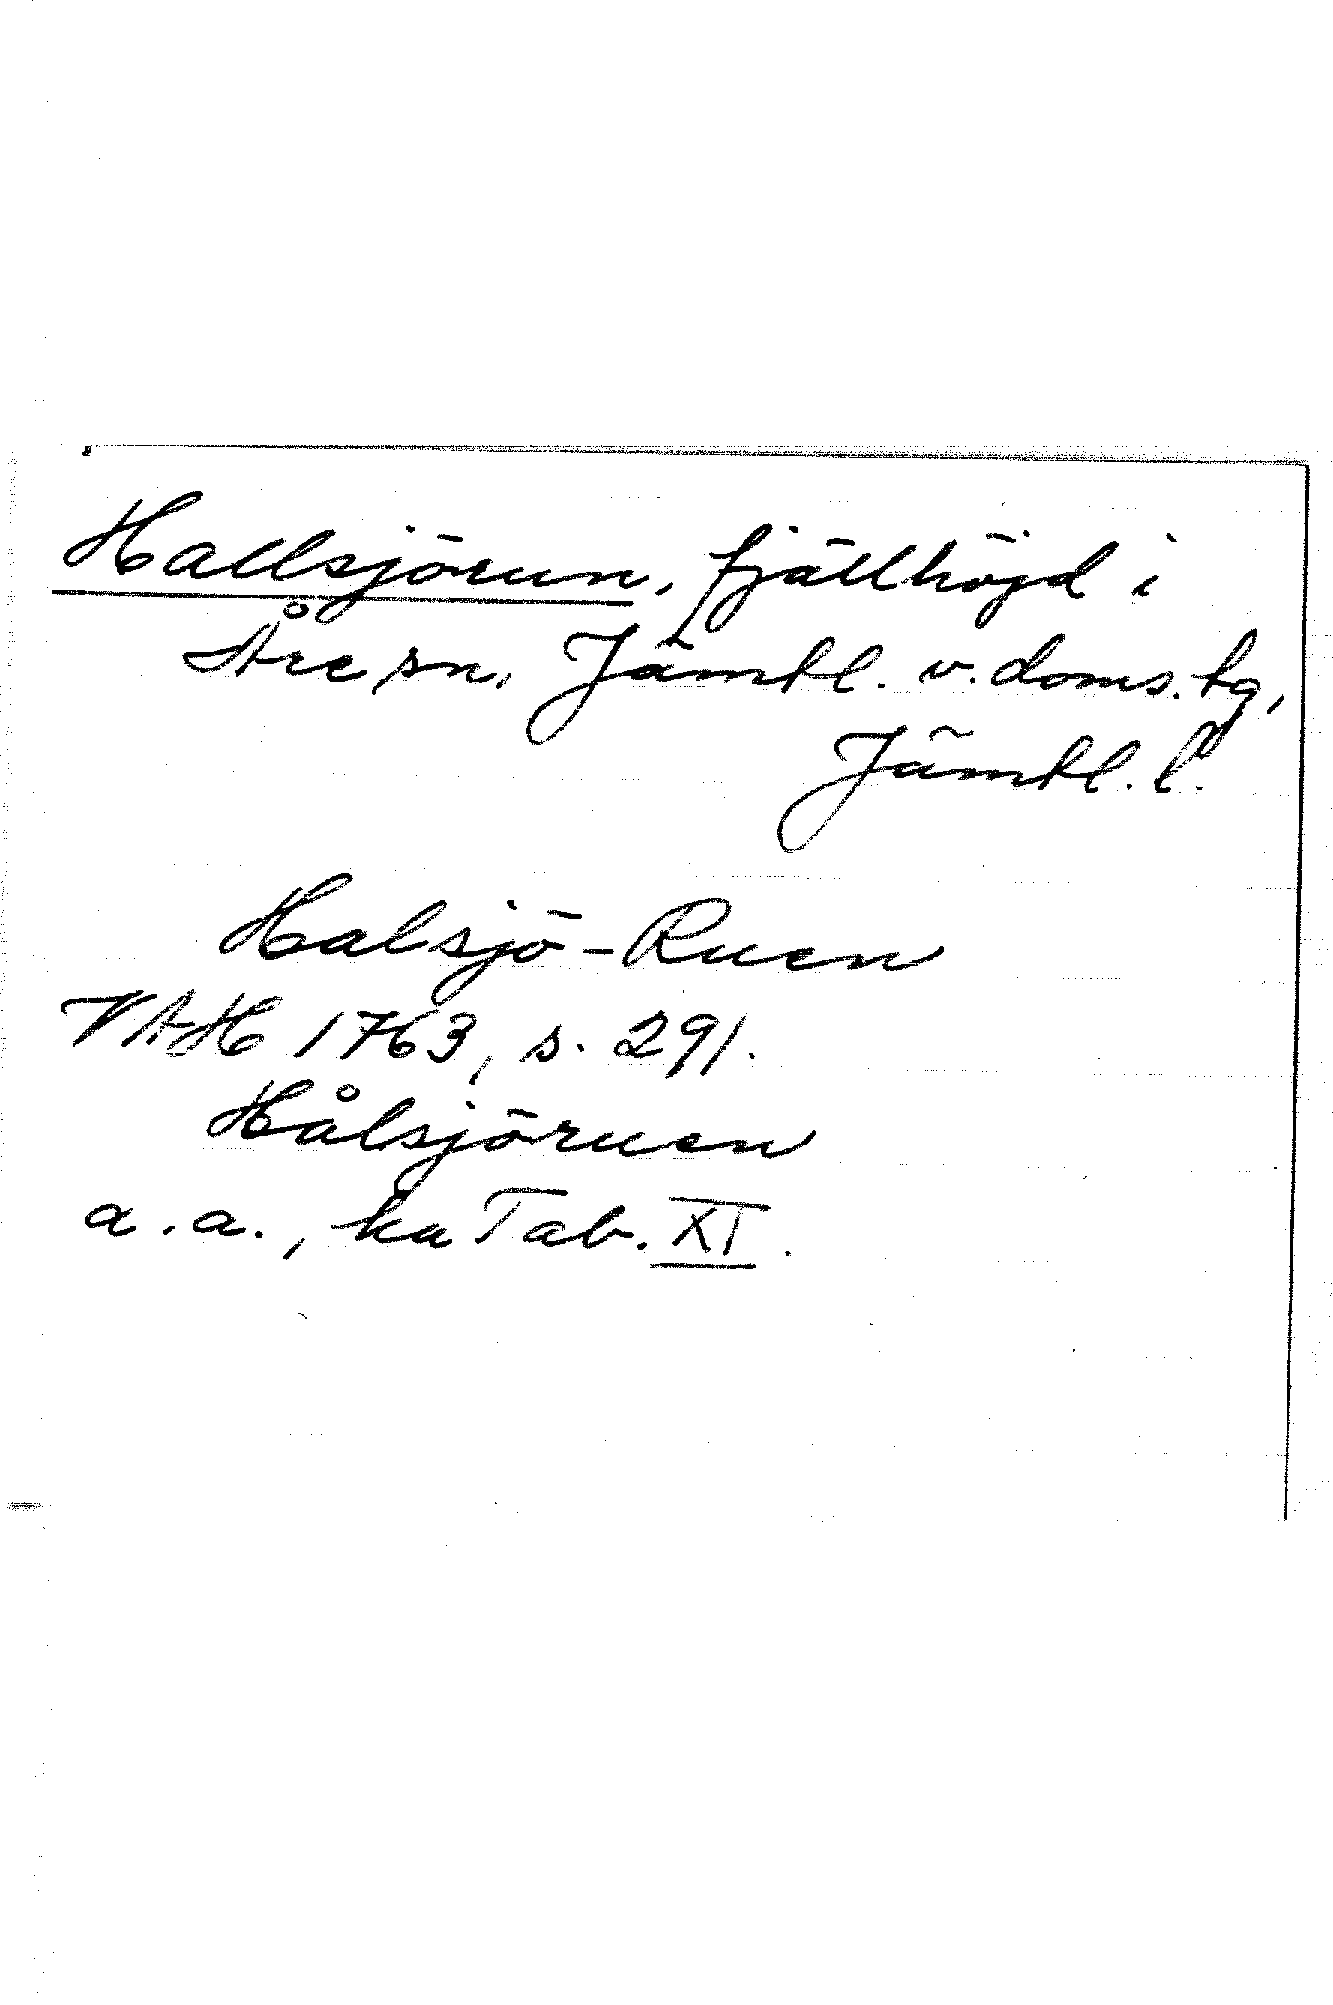 Hallsjörun, fjällhöjd i
Åre sn, Jämtl. v. doms. tg,
Jämtl. l.
Halsjö-Ruen
VAH 1763, s. 291.
Hålsjöruen
a.a., ka Tab. XI.